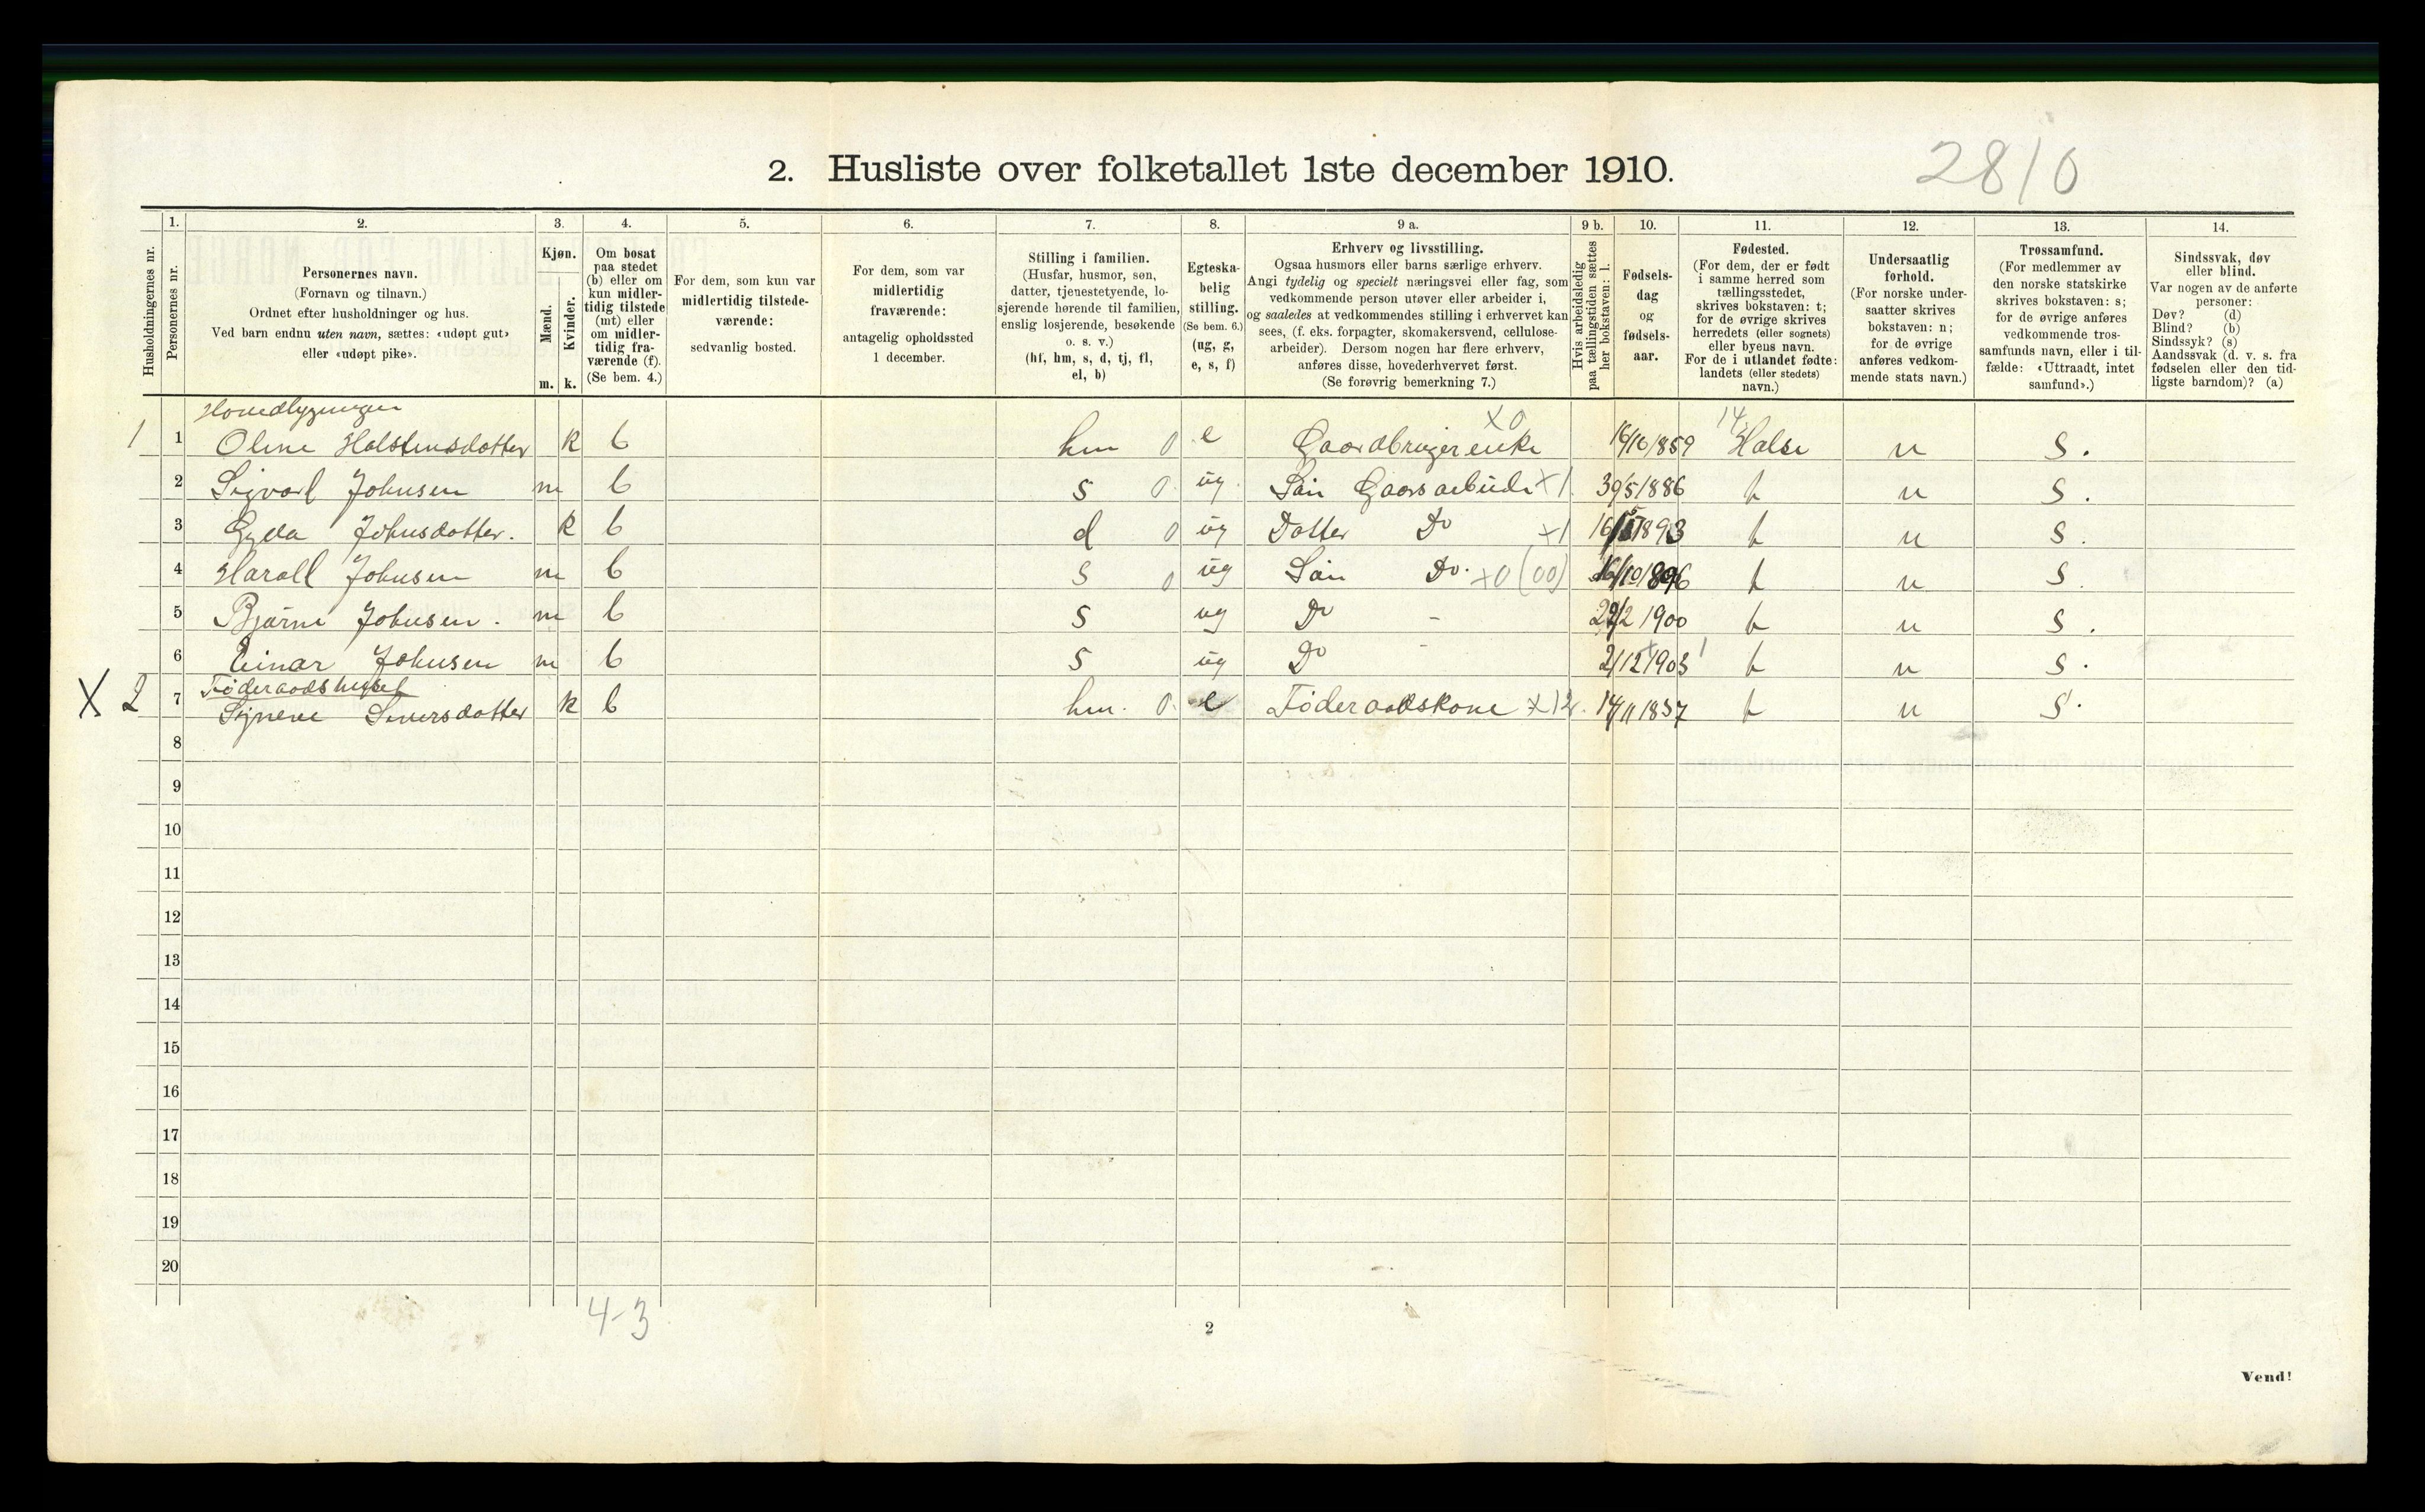 2. Husliste over folketallet 1ste december 1910.
2810
1. 2. 3. 4. 5. 6. 7. 8. 9 a. 9 b. 10. 11. 12. 13. 14.
Husholdningernes nr.
Personernes nr.
Personernes navn.
(Fornavn og tilnavn.)
Ordnet efter husholdninger og hus.
Ved barn endnu uten navn, sættes: «udøpt gut»
eller «udøpt pike».
Kjøn.
Mænd.
Kvinder.
m. k.
Om bosat
paa stedet
(b) eller om
kun midler-
tidig tilstede
(mt) eller
om midler-
tidig fra-
værende (f).
(Se bem. 4.)
For dem, som kun var
midlertidig tilstede-
værende:
sedvanlig bosted.
For dem, som var
midlertidig
fraværende:
antagelig opholdssted
1 december.
Stilling i familien.
(Husfar, husmor, søn,
datter, tjenestetyende, lo-
sjerende hørende til familien,
enslig losjerende, besøkende
o. s. v.)
(hf, hm, s, d, tj, fl,
el, b)
Egteska-
belig
stilling.
(Se bem. 6.)
(ug, g,
e, s, f)
Erhverv og livsstilling.
Ogsaa husmors eller barns særlige erhverv.
Angi tydelig og specielt næringsvei eller fag, som
vedkommende person utøver eller arbeider i,
og saaledes at vedkommendes stilling i erhvervet kan
sees, (f. eks. forpagter, skomakersvend, cellulose-
arbeider). Dersom nogen har flere erhverv,
anføres disse, hovederhvervet først.
(Se forøvrig bemerkning 7.)
Hvis arbeidsledig
paa tællingstiden sættes
her bokstaven: l.
Fødsels-
dag
og
fødsels-
aar.
Fødested.
(For dem, der er født
i samme herred som
tællingsstedet,
skrives bokstaven: t;
for de øvrige skrives
herredets (eller sognets)
eller byens navn.
For de i utlandet fødte:
landets (eller stedets)
navn.)
Undersaatlig
forhold.
(For norske under-
saatter skrives
bokstaven: n;
for de øvrige
anføres vedkom-
mende stats navn.)
Trossamfund.
(For medlemmer av
den norske statskirke
skrives bokstaven: s;
for de øvrige anføres
vedkommende tros-
samfunds navn, eller i til-
fælde: «Uttraadt, intet
samfund».)
Sindssvak, døv
eller blind.
Var nogen av de anførte
personer:
Døv? (d)
Blind? (b)
Sindssyk? (s)
Aandssvak (d. v. s. fra
fødselen eller den tid-
ligste barndom)? (a)
Hovedbygningen X0 14
1 1 Oline Halstensdotter k b hm 0 e Gaardbrugerenke 16/10/1859 Halse n S.
2 Sigvard Johnsen m b s 0 ug Sön Gaarsarbeide X1 30/5 1886 t n S.
3 Gyda Johnsdotter. k b d 0 ug Datter Do X1 1893 t n S.
4 Harall Johnsen m b s 0 ug Sön Do. X0 (00) 16/10 1896 t n S.
5 Bjarne Johnsen. m b s ug Do - 1900 t n S.
6 Einar Johnsen m b s ug Do - 2/12 1903 t n S.
Föderaadshuset
X 2 7 Siversdotter k b hm. 0 e Föderaadskone X12. 14/11 1837 t n S.
8
9
10
11
12
13
14
15
16
17
18
19
20
4-3
2
Vend!